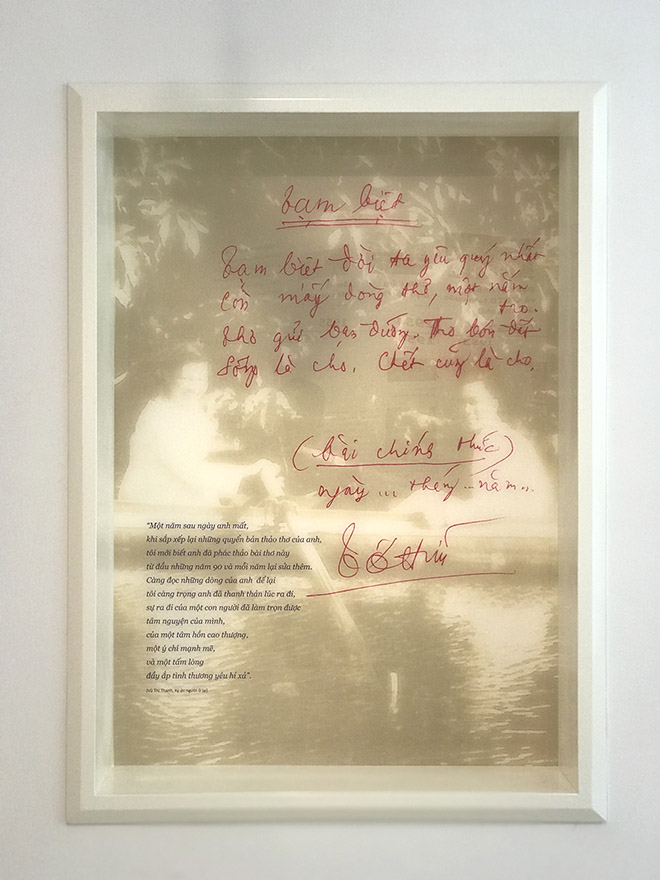 Tạm biệt
Tạm biệt đời ta yêu quý nhất
Còn mấy dòng thơ, một nắm
tro.
Thơ gửi bạn đường. Tro bón đất
Sống là cho. Chết cũng là cho.
(bài chính thức)
ngày ... tháng ... năm ...
Tố Hữu
"Một năm sau ngày anh mất,
khi sắp xếp lại những quyển bản thảo thơ của anh,
tôi mới biết anh đã phác thảo bài thơ này
từ đầu những năm 90 và mỗi năm lại sửa thêm.
Càng đọc những dòng của anh để lại
tôi càng trọng anh đã thanh thản lúc ra đi,
sự ra đi của một con người đã làm trọn được
tâm nguyện của mình,
của một tâm hồn cao thượng,
một ý chí mạnh mẽ,
và một tấm lòng
đầy ắp tình thương yêu hỉ xả".
(Vũ Thị Thanh, Ký ức người ở lại)